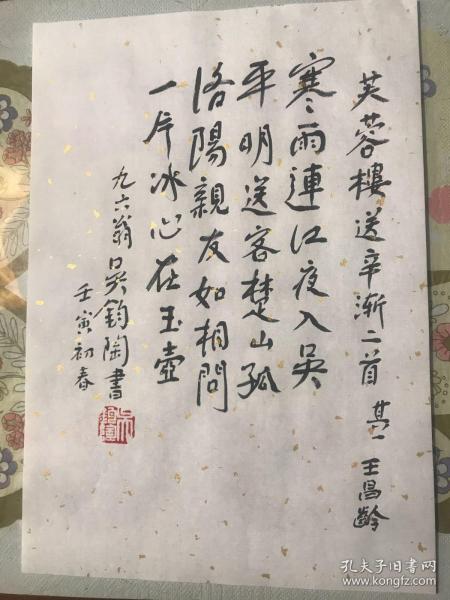 芙蓉樓送辛漸二首 其一 王昌齡
寒雨連江夜入吳
平明送客楚山孤
洛陽親友如相問
一片冰心在玉壺
九六翁吳鈞陶書
壬寅初春
孔夫子旧书网
www.kongfz.com